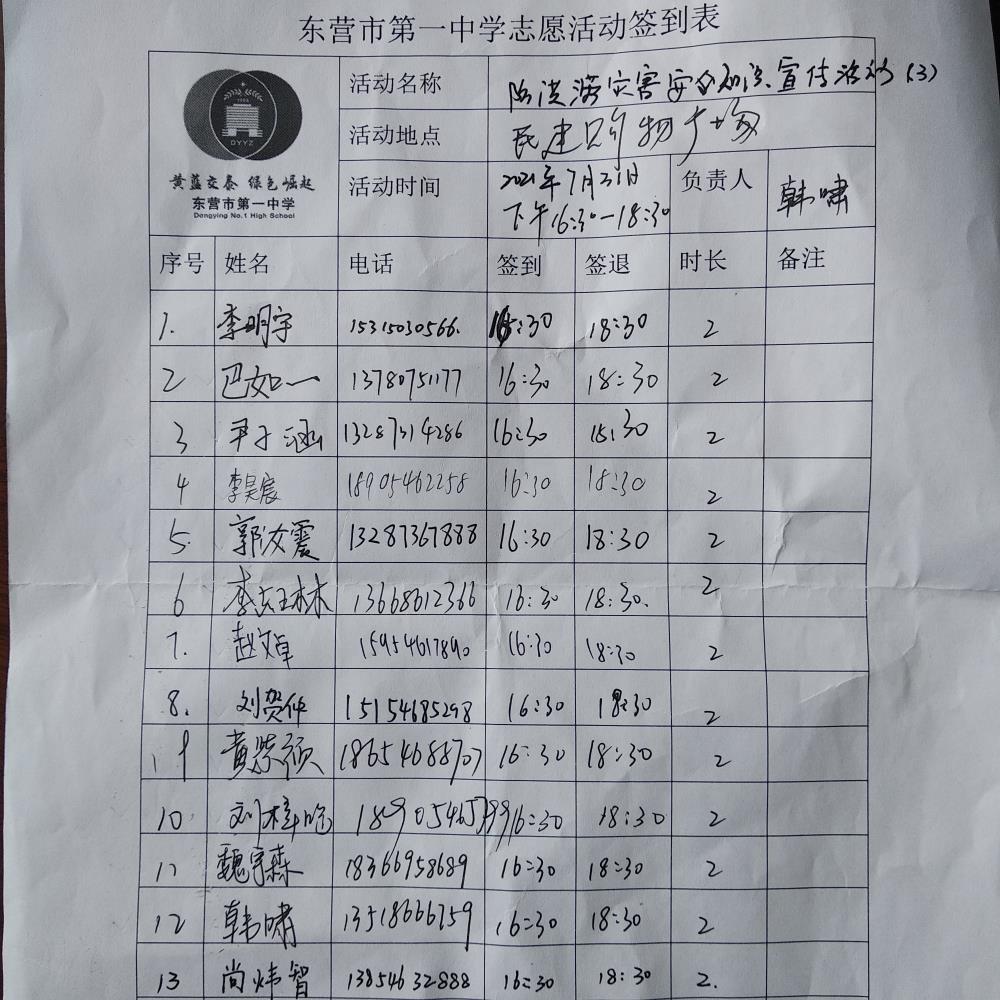 东营市第一中学志愿活动签到表
DYYZ
黄蓝交泰 绿色崛起
东营市第一中学
Dongying No.1 High School
活动名称 防洪涝灾害安全知识宣传活动(3)
活动地点 民建购物广场
活动时间 2021年7月31日 下午16:30—18:30 负责人 韩啸
序号 姓名 电话 签到 签退 时长 备注
1. 李明宇 15315030566. 16:30 18:30 2
2 巴如一 13780751177 16:30 18:30 2
3 尹子涵 13287314286 16:30 18:30 2
4 李昊宸 18905462258 16:30 18:30 2
5. 郭汝震 13287367888 16:30 18:30 2
6 李 13668612366 16:30 18:30. 2
7. 赵文卓 15954617890 16:30 18:30 2
8. 刘贺仲 15154685298 16:30 18:30 2
9 黄紫颀 18654688707 16:30 18:30 2
10 刘梓 18905465799 16:30 18:30 2
11 魏宇森 18366958689 16:30 18:30 2
12 韩啸 13518666759 16:30 18:30 2
13 尚炜智 13854632888 16:30 18:30 2.